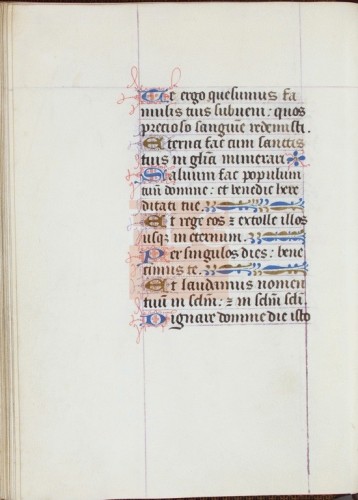 Te ergo quesumus fa
mulis tuis subueni: quos
precioso sanguīe redemisti.
Eterna fac cum sanctis
tuis in gl̄ia munerari
Saluum fac populum
tuū domine: et benedic here
ditati tue.
Et rege eos ⁊ extolle illos
usq; in eternum.
Per singulos dies: bene
dicimus te.
Et laudamus nomen
tuū in sclm̄: ⁊ in sclm̄ scl̄i.
Dignare domine die isto